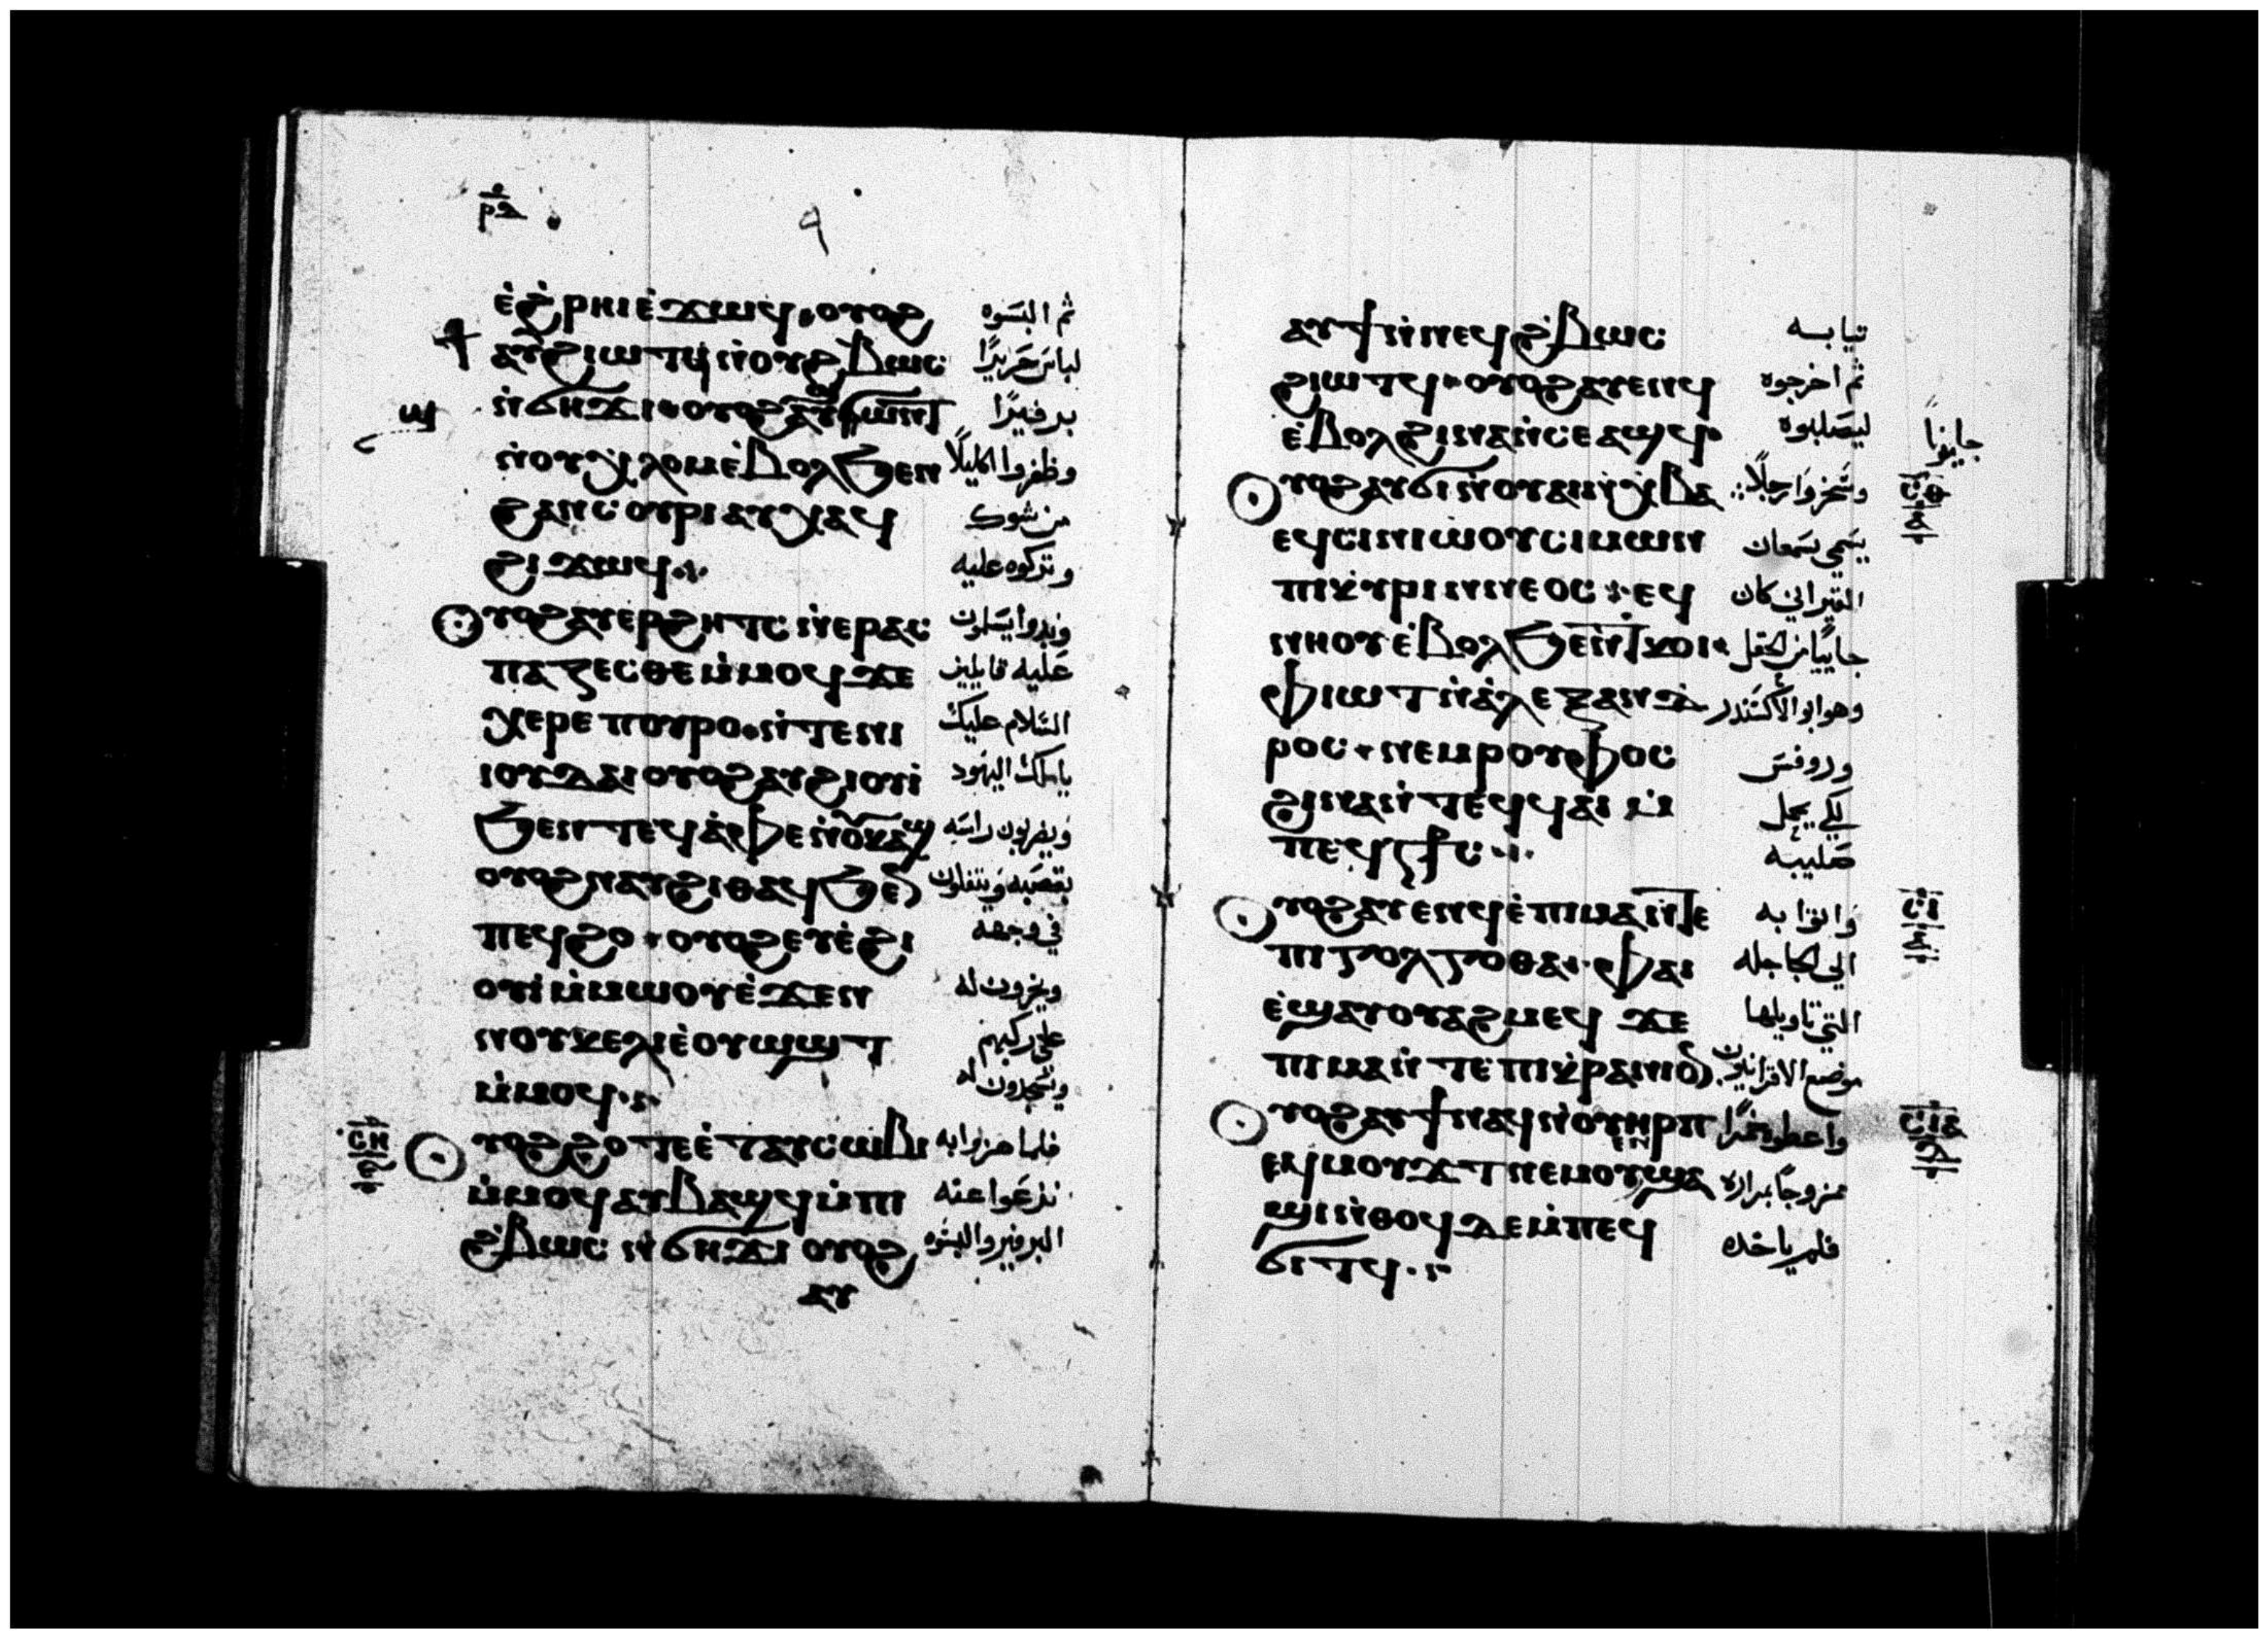 ⲣⲇ
٩
ⲉ̀ϩ̀ⲣⲏⲓⲉ̀ϫⲱϥ ⲟⲩⲟϩ ثم البسَوه
ⲁⲩϩⲓⲱⲧϥ ⲛ̀ⲟⲩϩⲃⲱⲥ لباسَ حَريرًا
ⲛ̀ϭⲏϫⲓ ⲟⲩⲟϩ ⲁⲩϣⲱⲛϯ برفيرًا
ⲛ̀ⲟⲩⲭⲗⲟⲙ ⲉ̀ⲃⲟⲗϧⲉⲛ وظفروا اكليلًا
ϩⲁⲛⲥⲟⲩⲣⲓ ⲁⲩⲭⲁϥ من شوك
ϩⲓϫⲱϥ وتركوه عليه
ⲟⲩⲟϩ ⲁⲩⲉⲣϩⲏⲧⲥ ⲛ̀ⲉⲣⲁⲥ وبدوا يسَلمون
ⲡⲁⲍⲉⲥⲑⲉ ⲙ̀ⲙⲟϥ ϫⲉ عَليه قايلين
ⲭⲉⲣⲉ ⲡⲟⲩⲣⲟ ⲛ̀ⲧⲉⲛⲓ السَلام عليك
ⲓⲟⲩⲇⲁⲓ ⲟⲩⲟϩ ⲁⲩϩⲓⲟⲩⲓ̀ ياملك اليهود
ϧⲉⲛ ⲧⲉϥⲁ̀ⲫⲉ ⲛ̀ⲟⲩⲕⲁϣ ويضربون راسَه
ⲟⲩⲟϩ ⲛⲁⲩϩⲓⲑⲁϥ ϧⲉⲛ بقصَبه ويتفلون
ⲡⲉϥϩⲟ ⲟⲩⲟϩ ⲉⲩⲉ̀ϩⲓ في وجهه
ⲟⲩⲓ̀ ⲙ̀ⲙⲱⲟⲩ ⲉ̀ϫⲉⲛ ويخرون له
ⲛⲟⲩⲕⲉⲗⲓ ⲉ̀ⲟⲩⲱϣⲧ علي ركبهم
ⲙ̀ⲙⲟϥ ويسَجدون له
ⲥⲏ
ⲟⲩⲟϩ ϩⲟⲧⲉ ⲉ̀ⲧⲁⲩⲥⲱⲃⲓ فلما هزوا به
ⲙ̀ⲙⲟϥ ⲁⲩⲃⲁϣϥ ⲙ̀ⲡⲓ نزعَوا عنه
ϩ̀ⲃⲱⲥ ⲛ̀ϭⲏϫⲓ ⲟⲩⲟϩ البرفير والبسَوه
ⲁⲩ
ⲁⲩϯ ⲛ̀ⲛⲉϥϩ̀ⲃⲱⲥ تيابه
ϩⲓⲱⲧϥ ⲟⲩⲟϩ ⲁⲩⲉⲛϥ ثم اخرجوه
ⲉ̀ⲃⲟⲗ ϩⲓⲛⲁ ⲛ̀ⲥⲉⲁϣϥ ليصَلبوه
ⲟⲩⲟϩ ⲁⲩϭⲓ ⲛ̀ⲟⲩⲁⲛⲭⲃⲁ وسَخروا رجلًا
ⲥⲑ
ⲉϥⲥⲓⲛⲓⲱⲟⲩ ⲥⲓⲙⲱⲛ يسَمي سَمعان
ⲡⲓⲕⲩⲣⲓⲛⲛⲉⲟⲥ ⲉϥ القيراني كان
ⲛⲏⲟⲩ ⲉ̀ⲃⲟⲗϧⲉⲛ ⲧⲕⲟⲓ جاييًا من الحقل
ⲫⲓⲱⲧ ⲛ̀ⲁ̀ⲗⲉⲝⲁⲛⲇ وهو ابو الاكسَندر
ⲣⲟⲥ ⲛⲉⲙ ⲣⲟⲩⲫⲟⲥ وروفسَ
ϩⲓⲛⲁ ⲛ̀ⲧⲉϥϥⲁⲓ ⲙ̀ لكي يحمل
ⲡⲉϥⲥϯⲥ صَليبه
ⲥⲓ
ⲟⲩⲟϩ ⲁⲩⲉⲛϥ ⲉ̀ⲡⲓⲙⲁ ⲛ̀ⲧⲉ واتوا به
ⲡⲓⲅⲟⲗⲅⲟⲑⲁ ⲫⲁⲓ الي الجاجله
ⲉ̀ϣⲁⲩⲟⲩⲁϩⲙⲉϥ ϫⲉ التي تاويلها
ⲡⲓⲙⲁ ⲛ̀ⲧⲉ ⲡⲓⲕ̀ⲣⲁⲛⲓⲟⲛ موضع الاقرانيون
ⲥⲓⲁ
ⲟⲩⲟϩ ⲁⲩϯ ⲛⲁϥ ⲛ̀ⲟⲩⲏⲣⲡ واعطوه خمرًا
ⲉϥⲙⲟⲩϫⲧ ⲛⲉⲙ ⲟⲩϣⲁ ممزوجًا بمراره
ϣⲓ ⲛ̀ⲑⲟϥ ⲇⲉ ⲙ̀ⲡⲉϥ فلم ياخده
ϭⲓⲧϥ